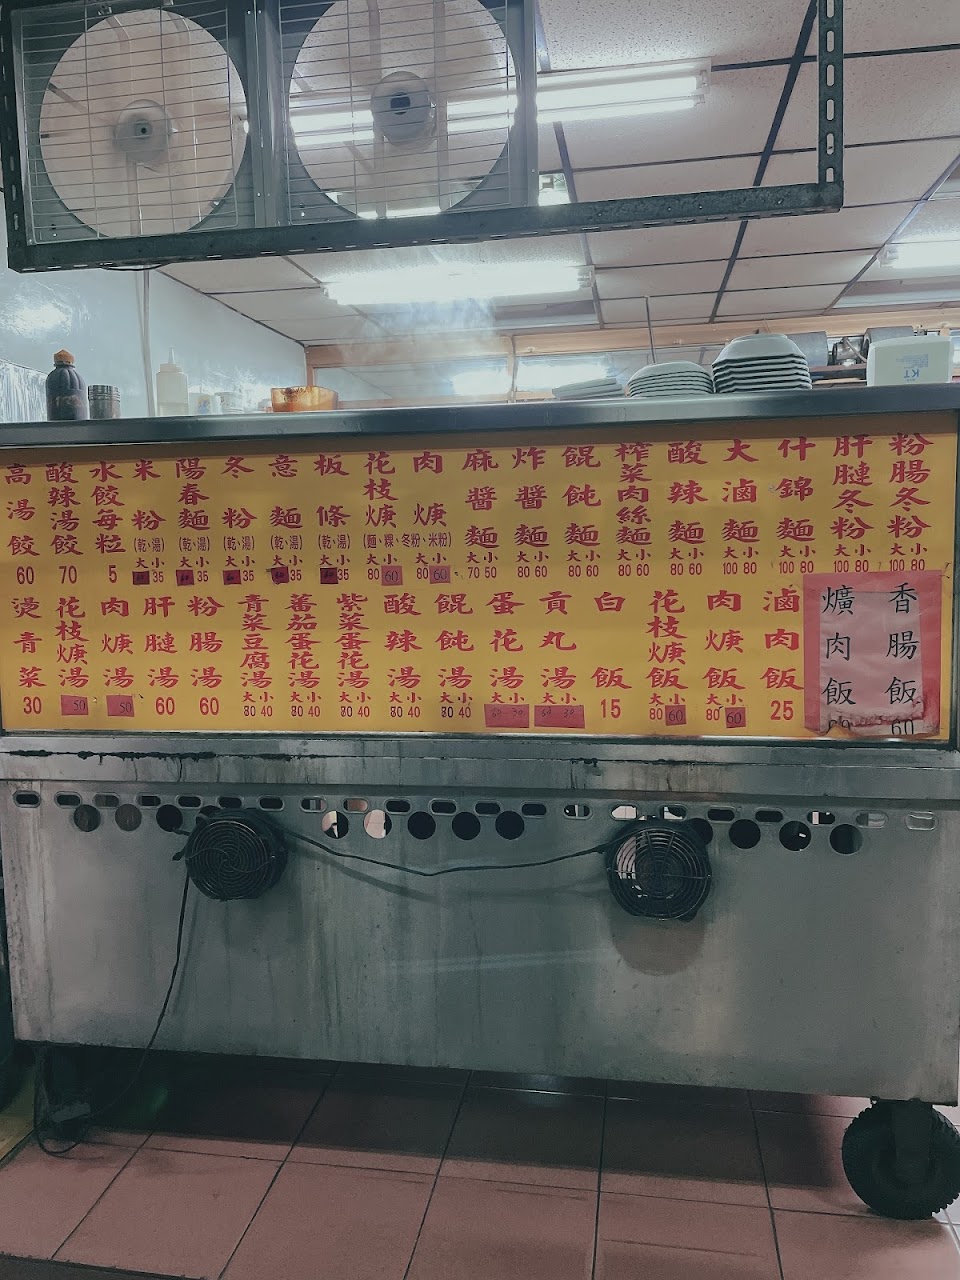 KT
粉腸冬粉 大小 100 80
肝腱冬粉 大小 100 80
什錦麵 大小 100 80
大滷麵 大小 100 80
酸辣麵 大小 80 60
榨菜肉絲麵 大小 80 60
餛飩麵 大小 80 60
炸醬麵 大小 80 60
麻醬麵 大小 70 50
肉焿 大小 80 60
花枝焿 大小 80 60
(麵、粿、冬粉、米粉)
板條 (乾、湯) 大小 35
意麵 (乾、湯) 大小 35
冬粉 (乾、湯) 大小 35
陽春麵 (乾、湯) 大小 35
米粉 (乾、湯) 大小 35
水餃每粒 5
酸辣湯餃 70
高湯餃 60
香腸飯 60
爌肉飯 60
滷肉飯 25
肉焿飯 大小 80 60
花枝焿飯 大小 80 60
白飯 15
貢丸湯 大小
蛋花湯 大小
餛飩湯 大小 80 40
酸辣湯 大小 80 40
紫菜蛋花湯 大小 80 40
蕃茄蛋花湯 大小 80 40
青菜豆腐湯 大小 80 40
粉腸湯 60
肝腱湯 60
肉焿湯 50
花枝焿湯 50
燙青菜 30